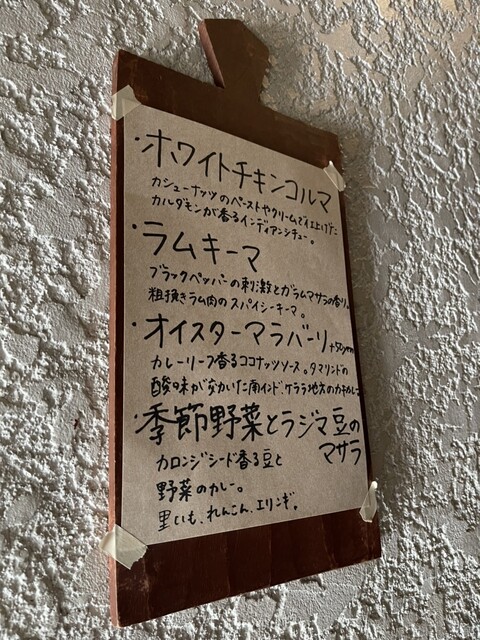 ・ホワイトチキンコルマ
カシューナッツのペーストやクリームで仕上げた
カルダモンが香るインディアンシチュー。
・ラムキーマ
ブラックペッパーの刺激とガラムマサラの香り。
粗挽きラム肉のスパイシーキーマ。
・オイスターマラバーリ +50yen
カレーリーフ香るココナッツソース。タマリンドの
酸味がきいた南インド、ケララ地方のカキカレー
・季節野菜とラジマ豆の
マサラ
カロンジシード香る豆と
野菜のカレー。
里いも、れんこん、エリンギ。